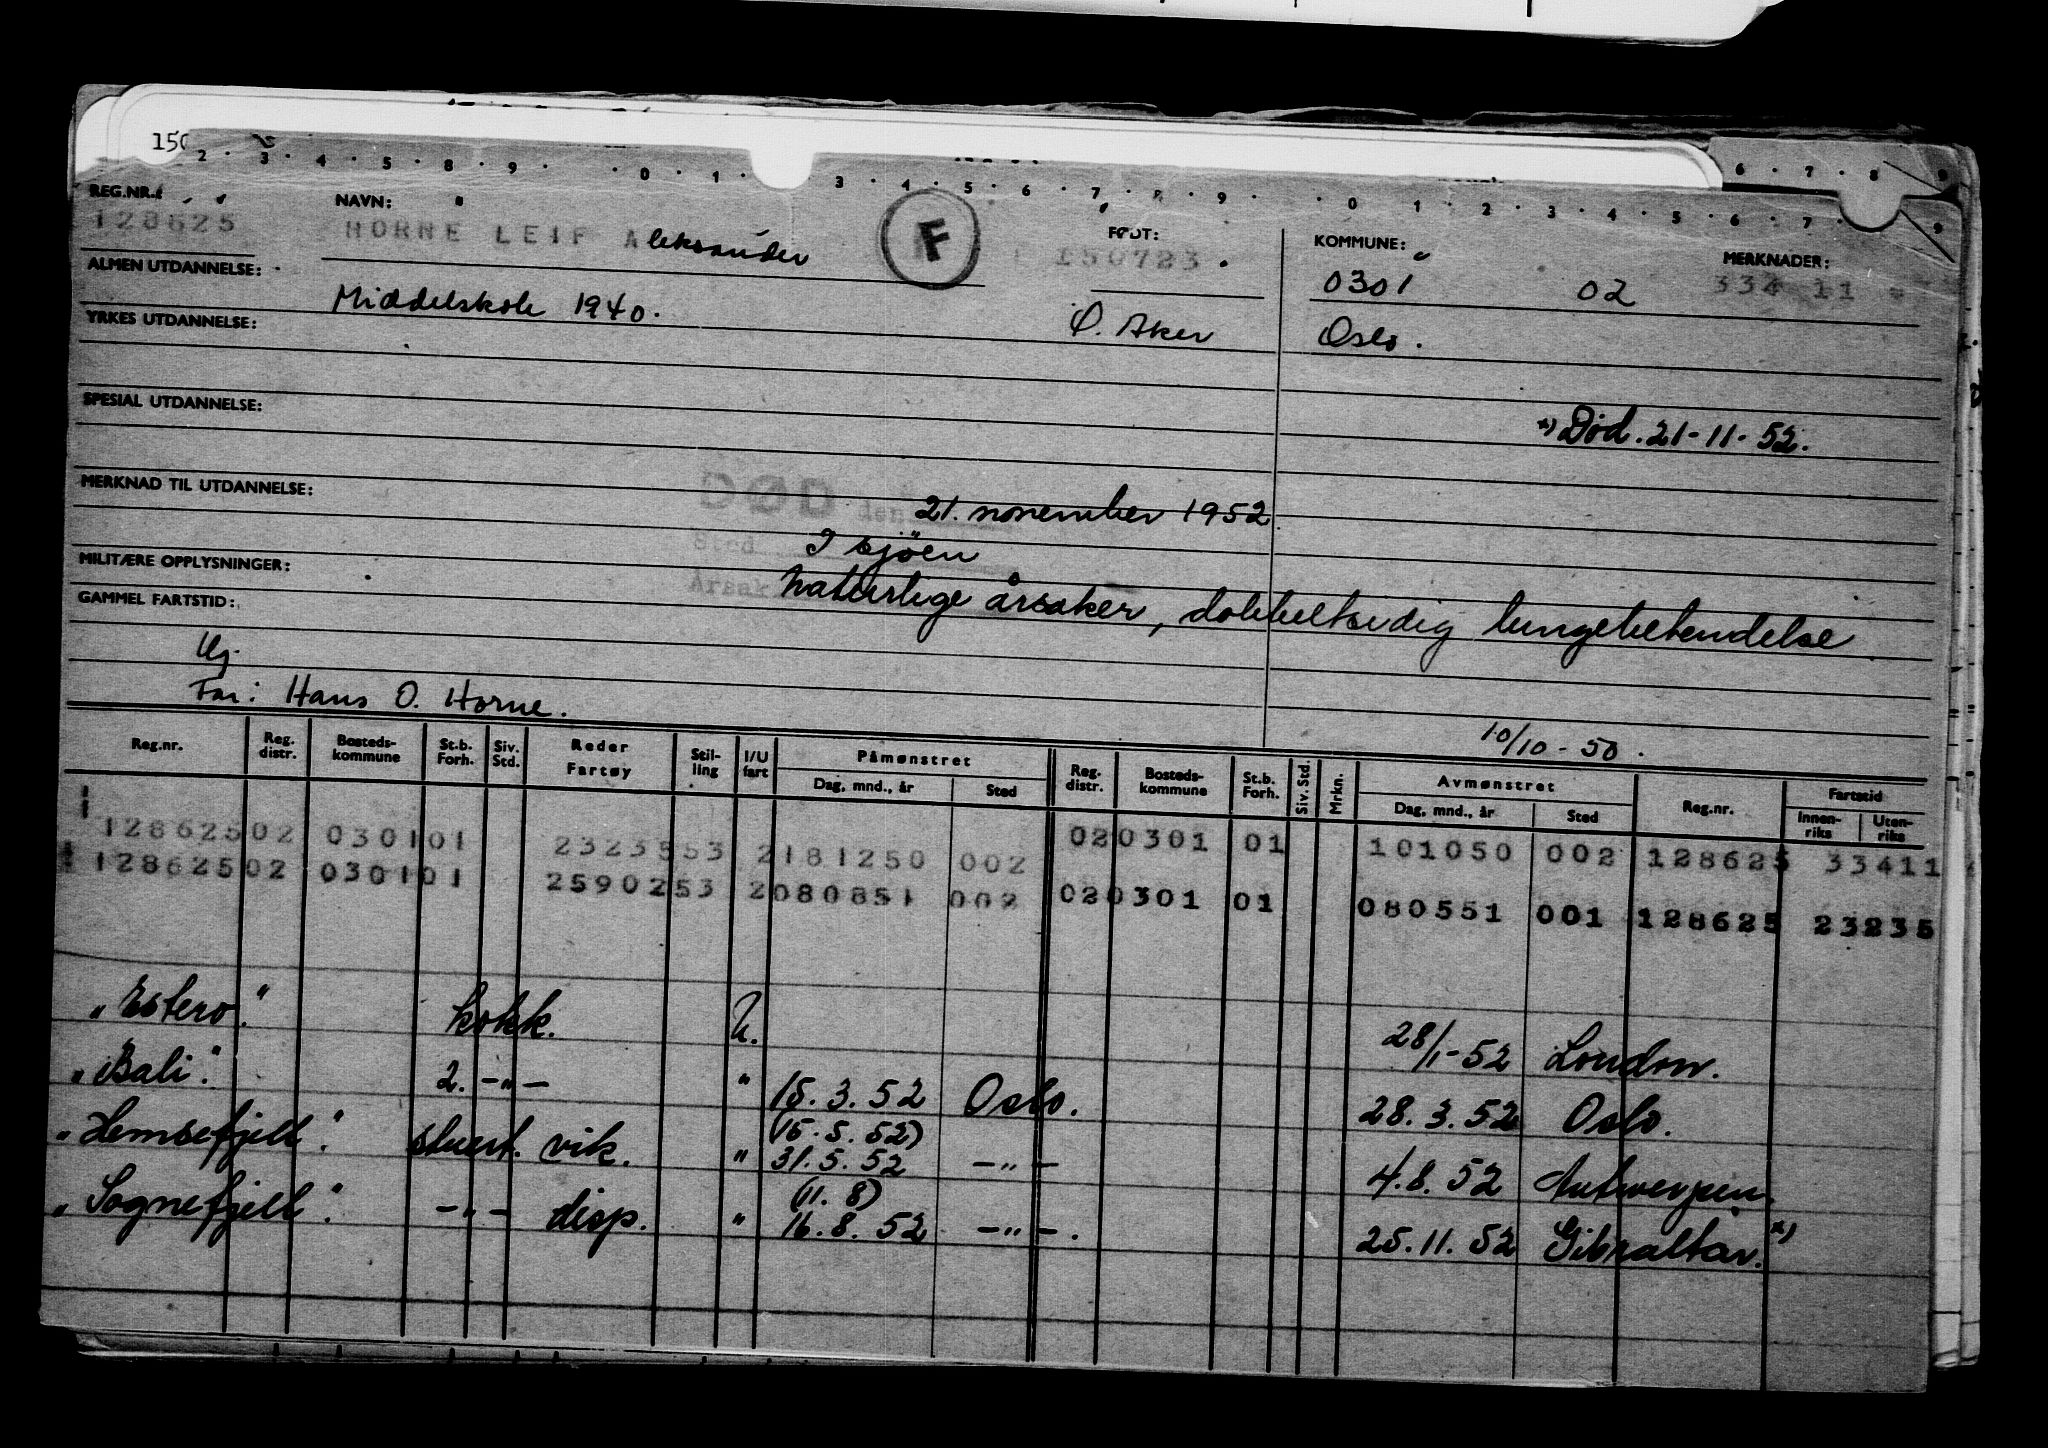 150
2 · 3 · 4 · 5 · 8 · 9 · · 0 · 1 · 3 · 4 · 5 · 6 · 7 · 8 · 9 · · 0 · 1 · 2 · 3 · 4 · 5 · 6 · 7 · 9
6 · 7 · 8 9
REG.NR.: NAVN: FØDT: KOMMUNE: MERKNADER:
128625 HORNE LEIF Aleksander F 150723 . 0301 02 334 11
ALMEN UTDANNELSE: Middelskole 1940. Ø. Aker Oslo.
YRKES UTDANNELSE:
SPESIAL UTDANNELSE:
x) Død. 21-11-52.
MERKNAD TIL UTDANNELSE:
DØD den 21. november 1952
Sted I sjøen
MILITÆRE OPPLYSNINGER:
Årsak naturlige årsaker, dobbeltsidig lungebetendelse
GAMMEL FARTSTID:
Ug.
Far: Hans O. Horne.
10/10-50.
Reg.nr. Reg. distr. Bosteds-kommune St.b. Forh. Siv. Std. Reder Fartøy Stil-ling I/U fart Påmønstret Dag, mnd., år Sted Reg. distr. Bosteds-kommune St.b. Forh. Siv. Std. Mrkn. Avmønstret Dag, mnd., år Sted Reg.nr. Fartstid Innen-riks Uten-riks
128625 02 0301 01 2323553 2 181250 002 02 0301 01 101050 002 128625 33411
128625 02 0301 01 2590253 2 080851 002 02 0301 01 080551 001 128625 23235
"Estero." kokk. U. 28/1-52 London.
"Bali". 2. -"- " 15.3.52 Oslo. 28.3.52 Oslo.
"Hemsefjell". stuert. vik. " (15.5.52) 31.5.52 -"- 4.8.52 Antwerpen.
"Sognefjell". -"- disp. " (11.8) 16.8.52 -"-. 25.11.52 Gibraltar. x)